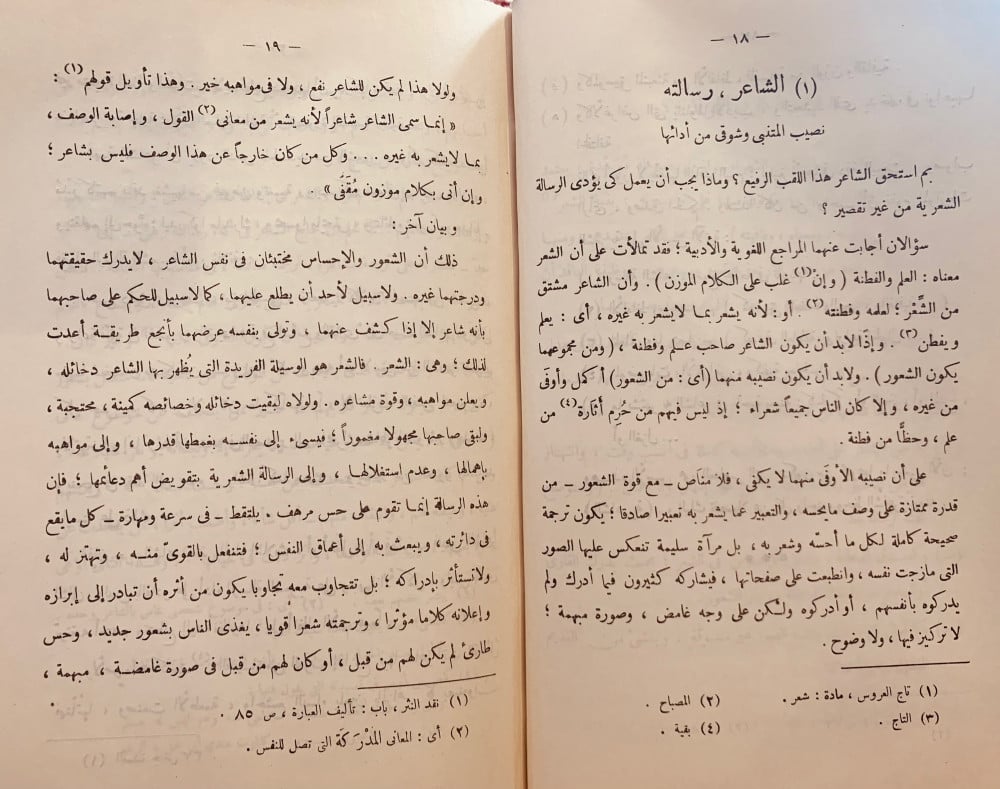 — ١٨ —
(١) الشاعر ، رسالته
نصيب المتنبى وشوقى من أدائها
بم استحق الشاعر هذا اللقب الرفيع ؟ وماذا يجب أن يعمل كى يؤدى الرسالة
الشعرية من غير تقصير ؟
سؤالان أجابت عنهما المراجع اللغوية والأدبية ؛ فقد تمالأت على أن الشعر
معناه : العلم والفطنة ( وإن(١) غلب على الكلام الموزن ) . وأن الشاعر مشتق
من الشِّعْر ؛ لعلمه وفطنته(٢) . أو : لأنه يشعر بما لايشعر به غيره ، أى : يعلم
ويفطن(٣) . وإذًا لابد أن يكون الشاعر صاحب علم وفطنة ، ( ومن مجموعهما
يكون الشعور ) . ولابد أن يكون نصيبه منهما (أى : من الشعور) أكمل وأوفَى
من غيره ، وإلا كان الناس جميعاً شعراء ؛ إذ ليس فيهم من حُرِم أثَارة(٤) من
علم ، وحظًّا من فطنة .
على أن نصيبه الأوفَى منهما لا يكفى ، فلا مناص – مع قوة الشعور – من
قدرة ممتازة على وصف مايحسه ، والتعبير عما يشعر به تعبيرا صادقا ؛ يكون ترجمة
صحيحة كاملة لكل ما أحسّه وشعر به ، بل مرآة سليمة تنعكس عليها الصور
التى مازجت نفسه ، وانطبعت على صفحاتها ، فيشاركه كثيرون فيما أدرك ولم
يدركوه بأنفسهم ، أو أدركوه ولكن على وجه غامض ، وصورة مبهمة ؛
لا تركيز فيها ، ولا وضوح .
(١) تاج العروس ، مادة : شعر . (٢) المصباح .
(٣) التاج . (٤) بقية .
— ١٩ —
ولولا هذا لم يكن للشاعر نفع ، ولا فى مواهبه خير . وهذا تأويل قولهم(١) :
« إنما سمى الشاعر شاعراً لأنه يشعر من معانى(٢) القول ، وإصابة الوصف ،
بما لايشعر به غيره . . . وكل من كان خارجاً عن هذا الوصف فليس بشاعر ؛
وإن أتى بكلام موزون مُقَفًّى » .
وبيان آخر :
ذلك أن الشعور والإحساس مختبئان فى نفس الشاعر ، لايدرك حقيقتهما
ودرجتهما غيره . ولاسبيل لأحد أن يطلع عليهما ، كما لاسبيل للحكم على صاحبهما
بأنه شاعر إلا إذا كشف عنهما ، وتولى بنفسه عرضهما بأنجع طريقة أعدت
لذلك ؛ وهى : الشعر . فالشعر هو الوسيلة الفريدة التى يُظهر بها الشاعر دخائله ،
ويعلن مواهبه ، وقوة مشاعره . ولولاه لبقيت دخائله وخصائصه كمينة ، محتجبة ،
ولبقى صاحبها مجهولا مغموراً ؛ فيسىء إلى نفسه بغمطها قدرها ، وإلى مواهبه
بإهمالها ، وعدم استغلالها ، وإلى الرسالة الشعرية بتقويض أهم دعائمها ؛ فإن
هذه الرسالة إنما تقوم على حس مرهف . يلتقط – فى سرعة ومهارة – كل مايقع
فى دائرته ، ويبعث به إلى أعماق النفس ؛ فتنفعل بالقوىّ منه ، وتهتز له ،
ولاتستأثر بإدراكه ؛ بل تتجاوب معه تجاوبا يكون من أثره أن تبادر إلى إبرازه
وإعلانه كلاما مؤثرا ، وترجمته شعرا قويا ، يغذى الناس بشعور جديد ، وحس
طارئ لم يكن لهم من قبل ، أو كان لهم من قبل فى صورة غامضة ، مبهمة ،
(١) نقد النثر ، باب : تأليف العبارة ، ص ٨٥ .
(٢) أى : المعانى المُدْرَكَة التى تصل للنفس .